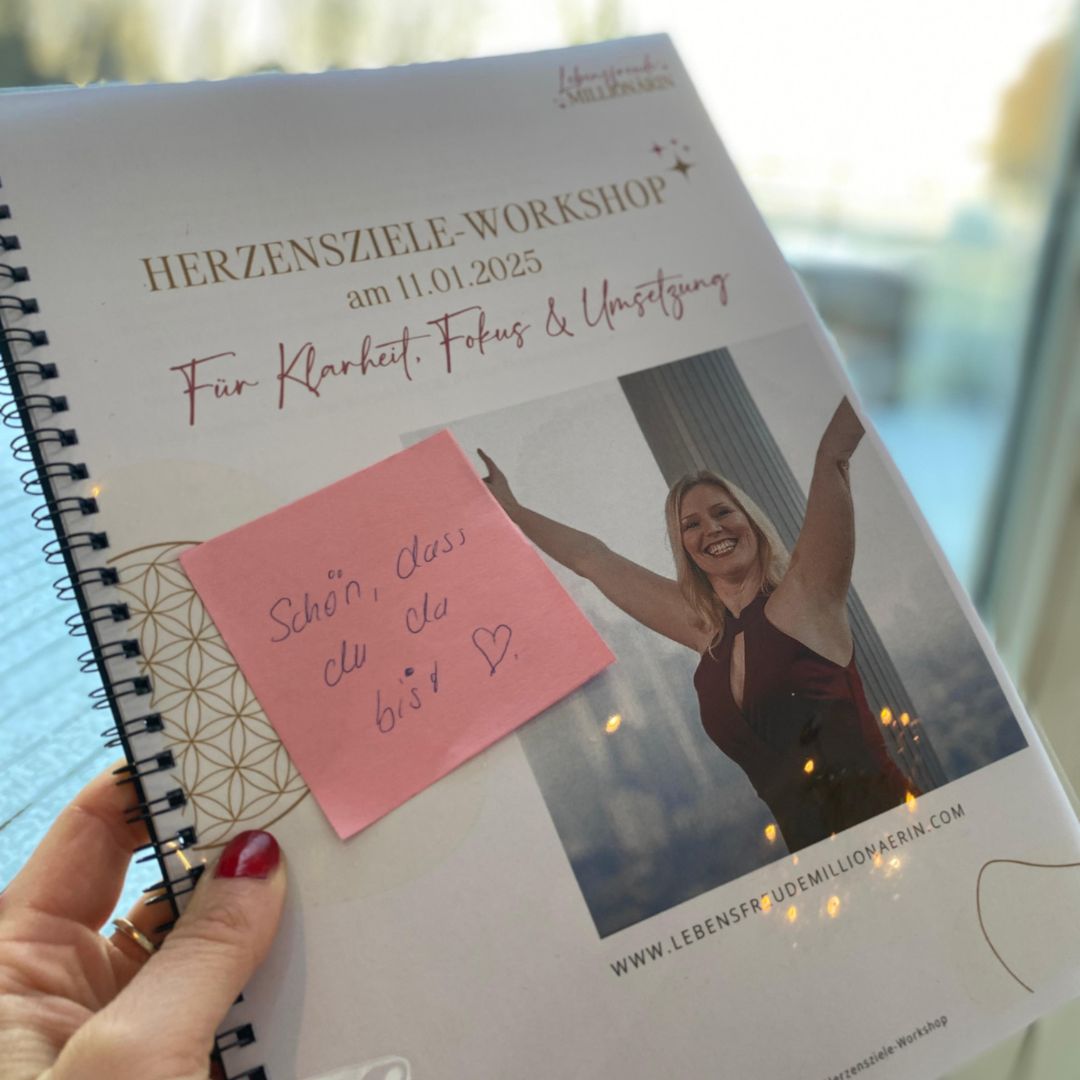 Lebensfreude
MILLIONÄRIN
HERZENSZIELE-WORKSHOP
am 11.01.2025
Für Klarheit, Fokus & Umsetzung
Schön, dass
du da
bist ♡.
WWW.LEBENSFREUDEMILLIONAERIN.COM
Herzensziele-Workshop